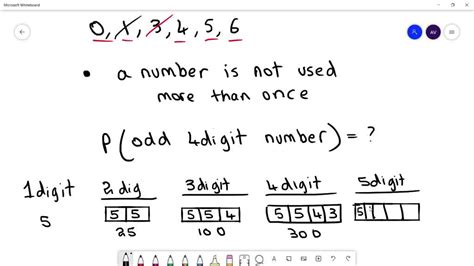 Microsoft Whiteboard
AV
0, 1, 3, 4, 5, 6
• a number is not used
more than once
P(odd 4digit number) = ?
1digit 2dig 3digit 4digit 5digit
5 5 5 5 5 4 5 5 4 3 5
25 100 300